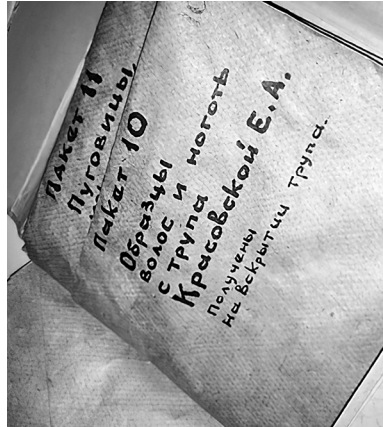 Пакет 11
Пуговицы,
Пакет 10
Образцы
волос и ноготь
с трупа
Красовской Е.А.
получены
на вскрытии трупа.